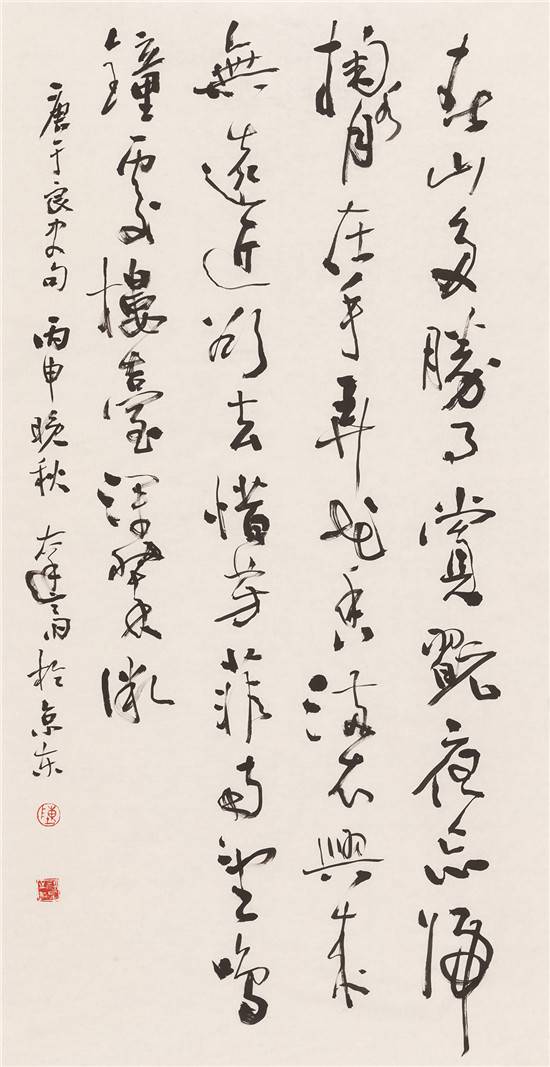 春山多勝事賞翫夜忘歸
掬水月在手弄花香滿衣興來
無遠近欲去惜芳菲南望鳴
鐘處樓臺深翠微
唐于良史句 丙申晚秋 於京東
陳